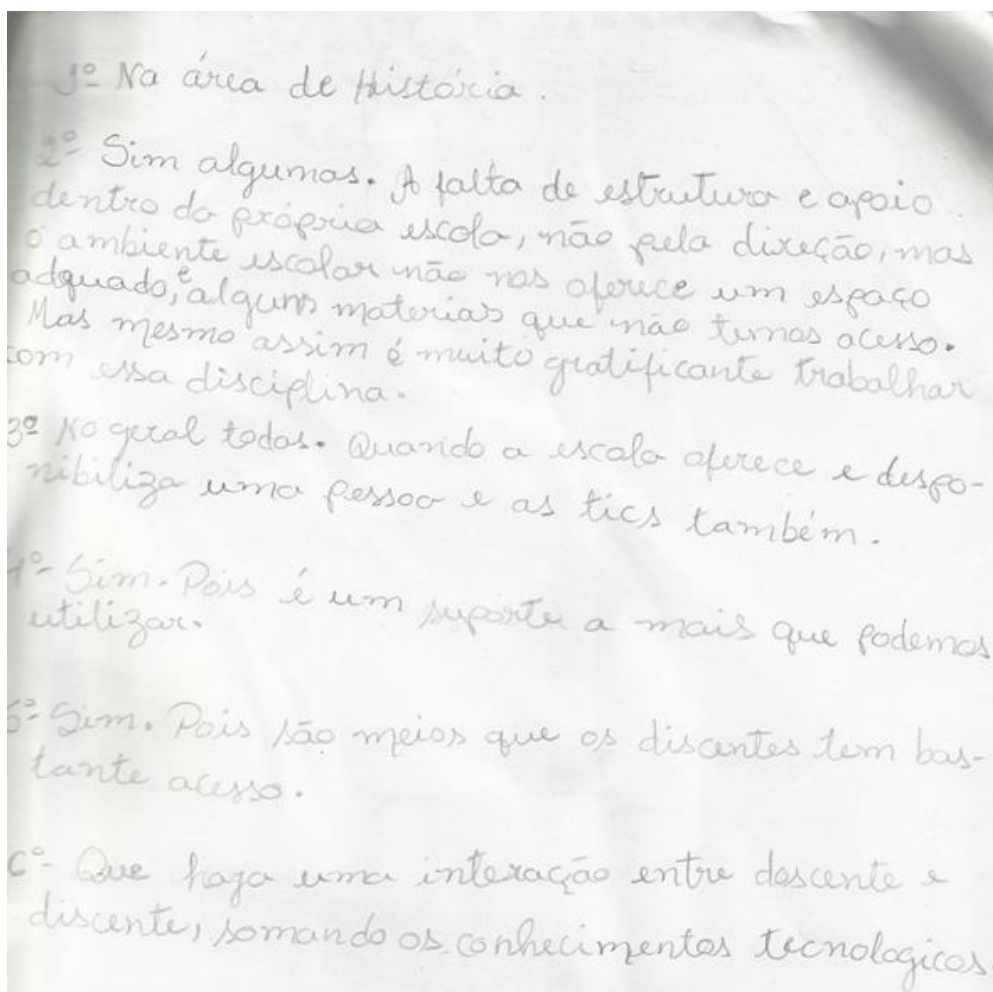 1º Na área de História.
2º Sim algumas. A falta de estrutura e apoio
dentro da própria escola, não pela direção, mas
o ambiente escolar não nos oferece um espaço
adquado, e alguns materias que não temos acesso.
Mas mesmo assim é muito gratificante trabalhar
com essa disciplina.
3º No geral todas. Quando a escola oferece e despo-
nibiliza uma pessoa e as tics também.
4º- Sim. Pois é um suporte a mais que podemos
utilizar.
5º- Sim. Pois são meios que os discentes tem bas-
tante acesso.
6º- Que haja uma interação entre doscente e
discente, somando os conhecimentos tecnologicos.